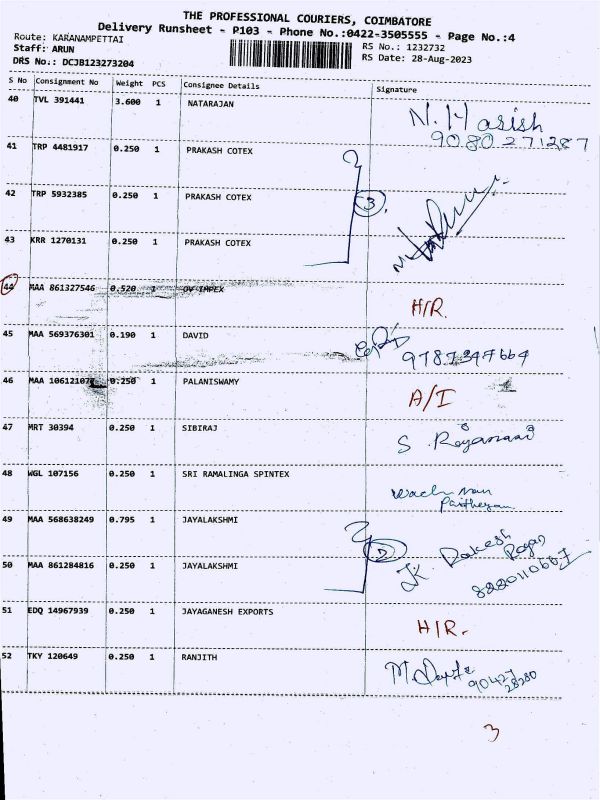 THE PROFESSIONAL COURIERS, COIMBATORE
Delivery Runsheet - P103 - Phone No.:0422-3505555 - Page No.:4
Route: KARANAMPETTAI
Staff: ARUN RS No.: 1232732
DRS No.: DCJB123273204 RS Date: 28-Aug-2023
S No Consignment No Weight PCS Consignee Details Signature
40 TVL 391441 3.600 1 NATARAJAN N. Harish
9080271287
41 TRP 4481917 0.250 1 PRAKASH COTEX
42 TRP 5932385 0.250 1 PRAKASH COTEX 3
43 KRR 1270131 0.250 1 PRAKASH COTEX
44 MAA 861327546 0.520 1 OV IMPEX H/R.
45 MAA 569376301 0.190 1 DAVID 9787347664
46 MAA 0.250 1 PALANISWAMY A/I
47 MRT 30394 0.250 1 SIBIRAJ S.
48 WGL 107156 0.250 1 SRI RAMALINGA SPINTEX Watch man
49 MAA 568638249 0.795 1 JAYALAKSHMI 2 Rakesh
50 MAA 861284816 0.250 1 JAYALAKSHMI
51 EDQ 14967939 0.250 1 JAYAGANESH EXPORTS H/R.
52 TKY 120649 0.250 1 RANJITH M.
3